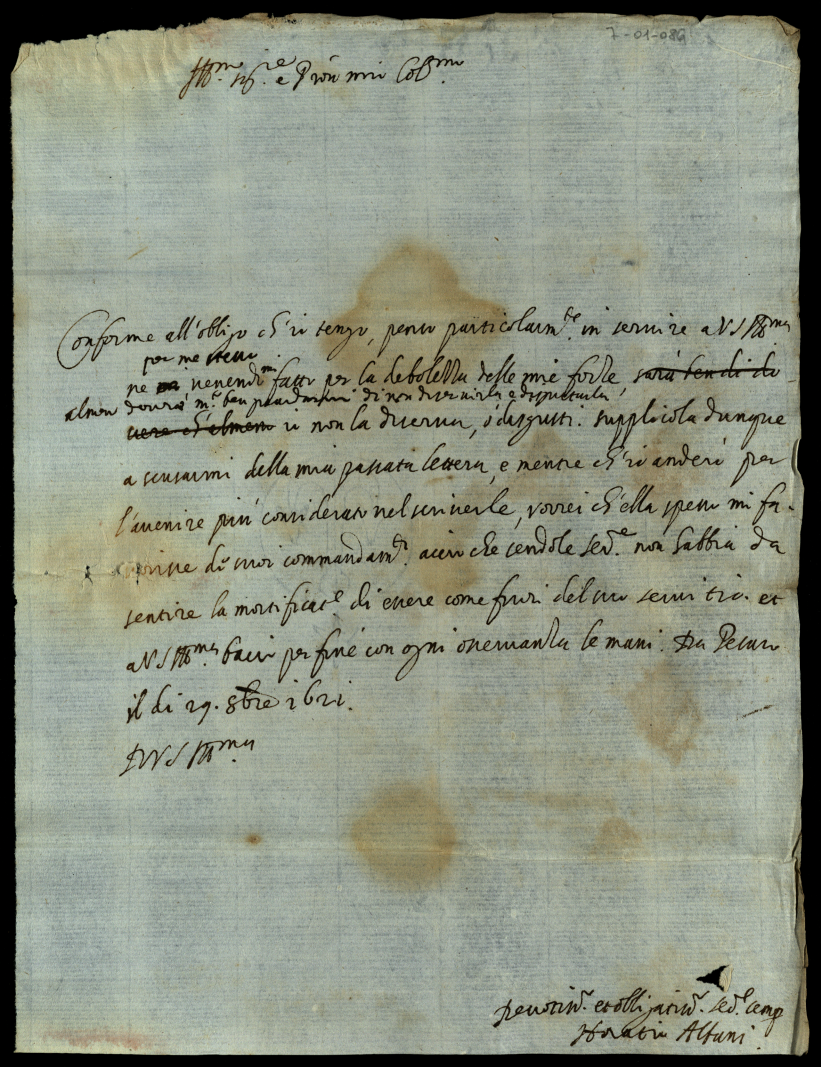 7-01-086
Ill.mo Sig.re e Pron mio Col.mo
Conforme all'obligo ch'io tengo, penso particolarm.te in servire a V S Ill.ma
per me stesso
ne venendom. fatto per la debolezza delle mie forze, sarà ben di do
almen dovrò ben guardarmi di non diservirla e disgustarla
vere ch'almen io non la diserva, ò disgusti. Supplicola dunque
a scusarmi della mia passata lettera, e mentre ch'io anderò per
l'avenire più considerato nel scriverle, vorrei ch'ella spesso mi fa-
vorisse de suoi commandam.ti acciò che sendole Ser.e non habbia da
sentire la mortificat.e di essere come fuori del suo servitio. et
a V S Ill.ma bacio per fine con ogni osservanza le mani. Da Pesaro
il di 29. 8bre 1621.
D V S Ill.ma
Devotiss.o et obligatiss.o ser.e semp.
Horatio Albani.